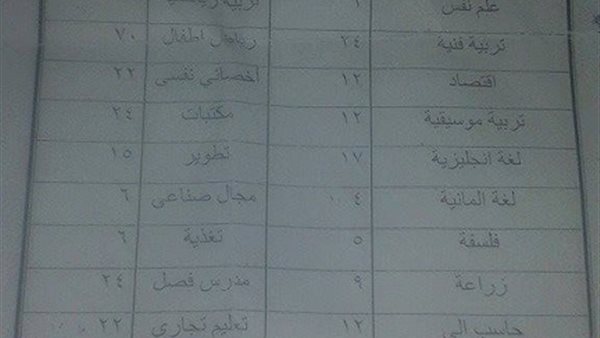 علم نفس ١ تربية
تربية فنية ٢٤ رياض اطفال ٧٠
اقتصاد ١٢ اخصائي نفسي ٢٢
تربية موسيقية ١٢ مكتبات ٢٤
لغة انجليزية ١٧ تطوير ١٥
لغة المانية ٤ مجال صناعى ٦
فلسفة ٥ تغذية ٦
زراعة ٩ مدرس فصل ٢٤
حاسب الى ١٢ تعليم تجارى ٢٢